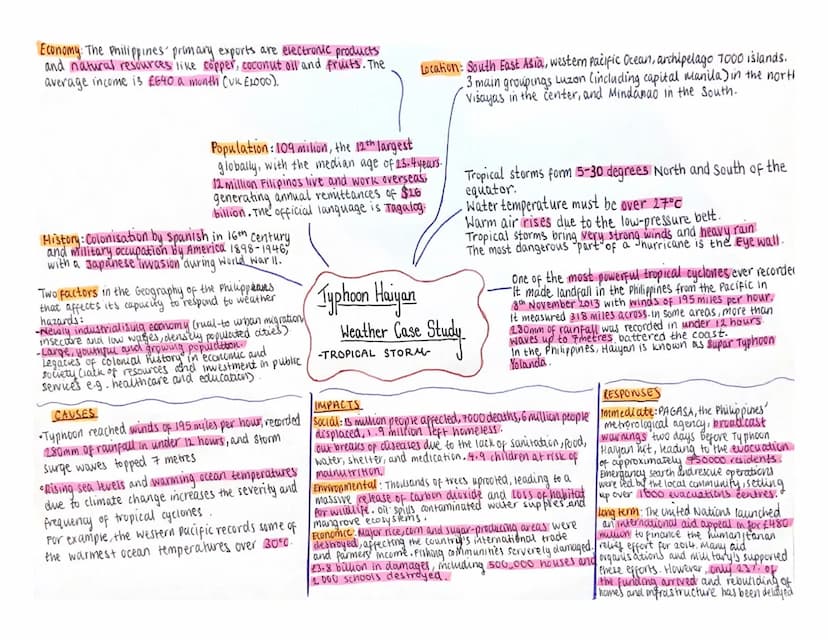 Economy: The Philippines' primary exports are electronic products
and natural resources like copper, coconut oil and fruits. The
average income is £640 a month (UK £1000).
Location: South East Asia, western Pacific Ocean, archipelago 7000 islands.
3 main groupings Luzon (including capital Manila) in the north
Visayas in the center, and Mindanao in the South.
Population: 109 milion, the 12th largest
globally, with the median age of 23.4 years.
12 million Filipinos live and work overseas,
generating annual remittances of $26
billion. The official language is Tagalog.
Tropical storms form 5-30 degrees North and South of the
equator.
Water temperature must be over 27°c
Warm air rises due to the low-pressure belt.
Tropical storms bring very strong winds and heavy rain
The most dangerous "part" of a hurricane is the Eye wall.
History: Colonisation by Spanish in 16th Century
and military occupation by America 1898-1946,
with a Japanese invasion during World War II.
Two factors in the Geography of the Philippines
that affects its capacity to respond to weather
hazards:
-Newly industrialising economy (rual-to urban migration
insecure and low wages, densely populated cities)
-Large, youthful and growing population.
Legacies of colonial history in economic and
society (lack of resources and investment in public
services e.g. healthcare and education).
Typhoon Haiyan
Weather Case Study
-TROPICAL STORM-
One of the most powerful tropical cyclones ever recorded
It made landfall in the Philippines from the Pacific in
8th November 2013 with winds of 195 miles per hour.
It measured 318 miles across. In some areas, more than
280mm of rainfall was recorded in under 12 hours
waves up to 7 metres battered the coast.
In the Philippines, Haiyan is known as Supar Typhoon
Yolanda.
CAUSES
•Typhoon reached winds of 195 miles per hour, recorded
280mm of rainfall in under 12 hours, and storm
surge waves topped 7 metres
•Rising sea levels and warming ocean temperatures
due to climate change increases the severity and
frequency of tropical cyclones.
For example, the Western Pacific records some of
the warmest ocean temperatures over 30°c.
IMPACTS
Social: 13 million people affected, 7000 deaths, 6 million people
displaced, 1.9 million left homeless.
Out breaks of diseases due to the lack of sanitation, food,
water, shelter, and medication. 4.9 children at risk of
malnutrition.
Environmental: Thousands of trees uproted, leading to a
massive release of carbon dioxide and loss of habitat
for wildlife. Oil spills contaminated water supplies and
mangrove ecosystems.
Economic: Major rice, corn and sugar-producing areas were
destroyed, affecting the country's international trade
and farmers' income. Fishing communities serverely damaged.
£3.8 billion in damages, including 500,000 houses and
2,000 schools destroyed.
RESPONSES
Immediate: PAGASA, the Philippines'
metrological agency, broadcast
warnings two days before Typhoon
Haiyan hit, leading to the evacuation
of approximately 750000 residents.
Emergency search and rescue operations
were led by the local community, setting
up over 1000 evacuations centres.
Long term: The United Nations launched
an international aid appeal in for £480
million to finance the humanitarian
relief effort for 2014. Many aid
organisations and military's supported
these efforts. However, only 23% of
the funding arrived and rebuilding of
homes and infrastructure has been delayed